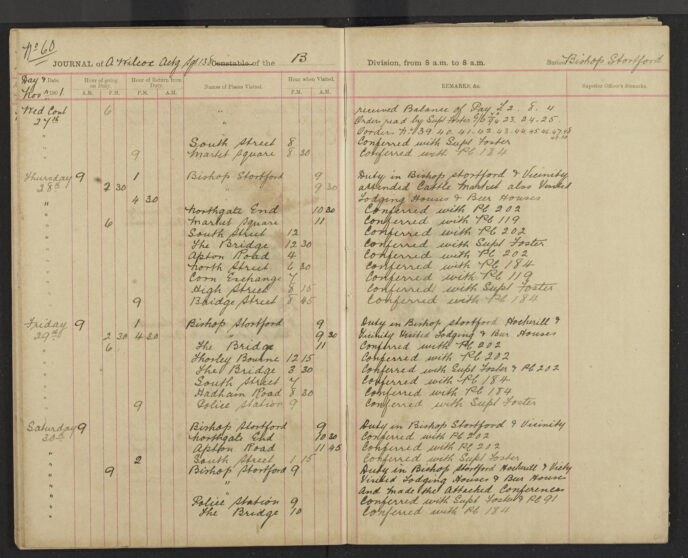 No 60
JOURNAL of A Wilcox Actg Sgt 138 Constable of the B Division, from 8 a.m. to 8 a.m. Station Bishop Stortford
Day & Date. Hour of going on Duty. Hour of Return from Duty. Names of Places Visited. Hour when Visited. REMARKS, &c. Superior Officer's Remarks.
Novr 1901 A.M. P.M. A.M. P.M. A.M. P.M.
Wed Cont 6 " received Balance of Pay £2. 8. 4
27th " Order read by Supt Foster 23. 24. 25
" 39. 40. 41. 42. 43. 44. 45. 46. 47. 48
" South Street 8 Conferred with Supt Foster
" 9 Market Square 8 30 Conferred with Pc 184
Thursday 9 1 Bishop Stortford 9 Duty in Bishop Stortford & Vicinity
28th 2 30 " 9 30 attended Cattle Market also Visited
" 4 30 Lodging Houses & Beer Houses
" Northgate End 10 30 Conferred with Pc 202
" 6 Market Square 11 Conferred with Pc 119
" South Street 12 Conferred with Pc 202
" The Bridge 12 30 Conferred with Supt Foster
" Apton Road 4 Conferred with Pc 202
" North Street 6 30 Conferred with Pc 184
" Corn Exchange 7 Conferred with Pc 119
" High Street 8 15 Conferred with Supt Foster
" 9 Bridge Street 8 45 Conferred with Pc 184
Friday 9 1 Bishop Stortford 9 Duty in Bishop Stortford Hockerill &
29th 2 30 4 30 " 9 30 Vicinity Visited Lodging & Beer Houses
" 6 The Bridge 11 Conferred with Pc 202
" Thorley Bourne 12 15 Conferred with Pc 202
" The Bridge 3 30 Conferred with Supt Foster & Pc 202
" South Street 7 Conferred with Pc 184
" Hadham Road 8 30 Conferred with Pc 184
" 9 Police Station 9 Conferred with Supt Foster
Saturday 9 Bishop Stortford 9 Duty in Bishop Stortford & Vicinity
30th Northgate End 10 30 Conferred with Pc 202
" Apton Road 11 45 Conferred with Pc 202
" 2 South Street 1 15 Conferred with Supt Foster
" 9 Bishop Stortford 9 Duty in Bishop Stortford Hockerill & Victy
" " Visited Lodging Houses & Beer Houses
" " And made the Attached Conferences
" Police Station 9 Conferred with Supt Foster & Pc 91
" The Bridge 10 Conferred with Pc 184